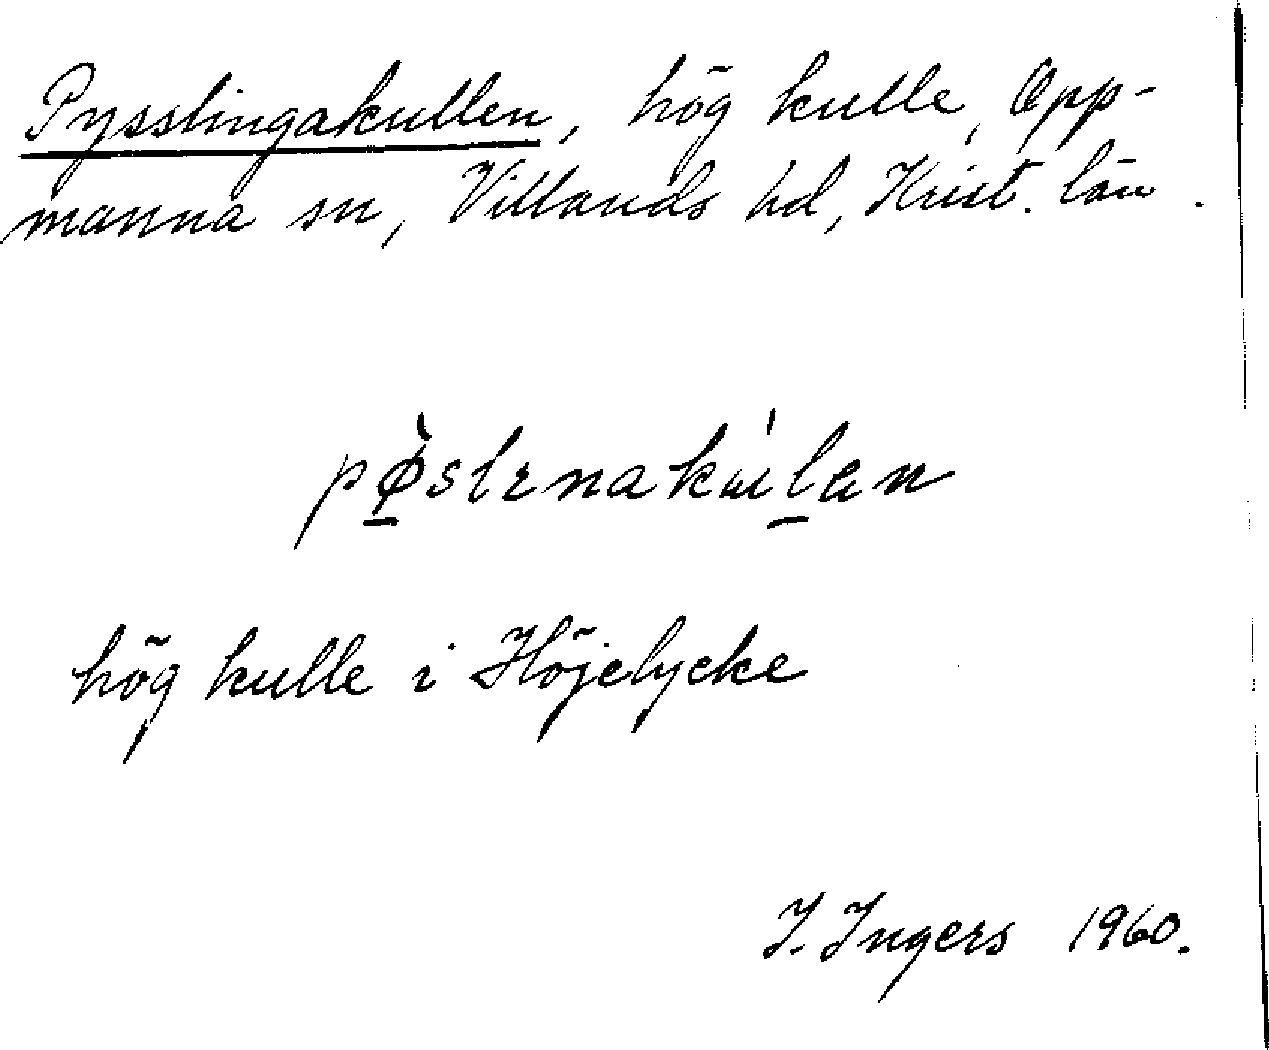 Pysslingakullen, hög kulle, Opp-
manna sn, Villands hd, Krist. län.
pø̀slɪnakúlan
hög kulle i Höjelycke
I. Ingers 1960.